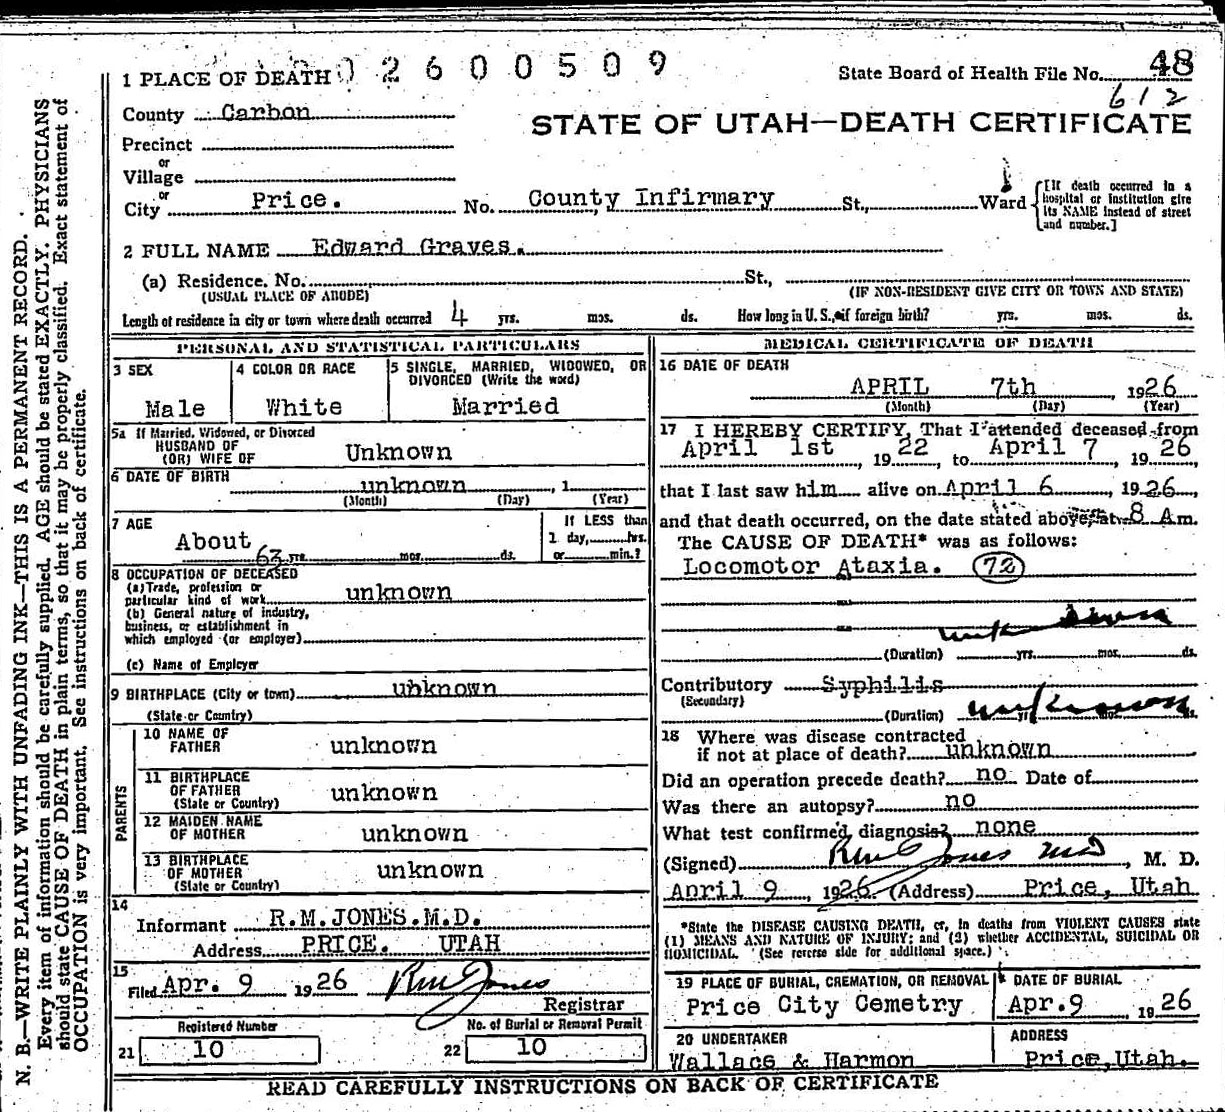 1 PLACE OF DEATH 0 2 6 0 0 5 0 9
State Board of Health File No. 48
612
County Carbon
STATE OF UTAH—DEATH CERTIFICATE
Precinct
or
Village
or
City Price. No. County Infirmary St., Ward
[If death occurred in a hospital or institution give its NAME instead of street and number.]
2 FULL NAME Edward Graves.
(a) Residence. No. St.,
(USUAL PLACE OF ABODE) (IF NON-RESIDENT GIVE CITY OR TOWN AND STATE)
Length of residence in city or town where death occurred 4 yrs. mos. ds. How long in U. S., if foreign birth? yrs. mos. ds.
PERSONAL AND STATISTICAL PARTICULARS
3 SEX
Male
4 COLOR OR RACE
White
5 SINGLE, MARRIED, WIDOWED, OR DIVORCED (Write the word)
Married
5a If Married, Widowed, or Divorced
HUSBAND OF
(OR) WIFE OF Unknown
6 DATE OF BIRTH unknown , 1
(Month) (Day) (Year)
7 AGE
About 63 yrs. mos. ds.
If LESS than
1 day, hrs.
or min.?
8 OCCUPATION OF DECEASED
(a) Trade, profession or
particular kind of work unknown
(b) General nature of industry,
business, or establishment in
which employed (or employer)
(c) Name of Employer
9 BIRTHPLACE (City or town) unknown
(State or Country)
PARENTS
10 NAME OF
FATHER unknown
11 BIRTHPLACE
OF FATHER
(State or Country) unknown
12 MAIDEN NAME
OF MOTHER unknown
13 BIRTHPLACE
OF MOTHER
(State or Country) unknown
14
Informant R.M.JONES.M.D.
Address PRICE. UTAH
15
Filed Apr. 9 1926 RM Jones
Registrar
Registered Number
21 10
No. of Burial or Removal Permit
22 10
MEDICAL CERTIFICATE OF DEATH
16 DATE OF DEATH
APRIL 7th 1926
(Month) (Day) (Year)
17 I HEREBY CERTIFY, That I attended deceased from
April 1st , 1922, to April 7 , 1926,
that I last saw him alive on April 6 , 1926,
and that death occurred, on the date stated above, at 8 A m.
The CAUSE OF DEATH* was as follows:
Locomotor Ataxia. 72
unknown
(Duration) yrs. mos. ds.
Contributory Syphilis
(Secondary)
(Duration) unknown
18 Where was disease contracted
if not at place of death? unknown
Did an operation precede death? no Date of
Was there an autopsy? no
What test confirmed diagnosis? none
(Signed) RM Jones MD , M. D.
April 9 1926 (Address) Price, Utah
*State the DISEASE CAUSING DEATH, or, in deaths from VIOLENT CAUSES state
(1) MEANS AND NATURE OF INJURY; and (2) whether ACCIDENTAL, SUICIDAL OR
HOMICIDAL. (See reverse side for additional space.)
19 PLACE OF BURIAL, CREMATION, OR REMOVAL
Price City Cemetry
DATE OF BURIAL
Apr.9 1926
20 UNDERTAKER
Wallace & Harmon
ADDRESS
Price,Utah.
READ CAREFULLY INSTRUCTIONS ON BACK OF CERTIFICATE
N. B.—WRITE PLAINLY WITH UNFADING INK—THIS IS A PERMANENT RECORD.
Every item of information should be carefully supplied. AGE should be stated EXACTLY. PHYSICIANS
should state CAUSE OF DEATH in plain terms, so that it may be properly classified. Exact statement of
OCCUPATION is very important. See instructions on back of certificate.